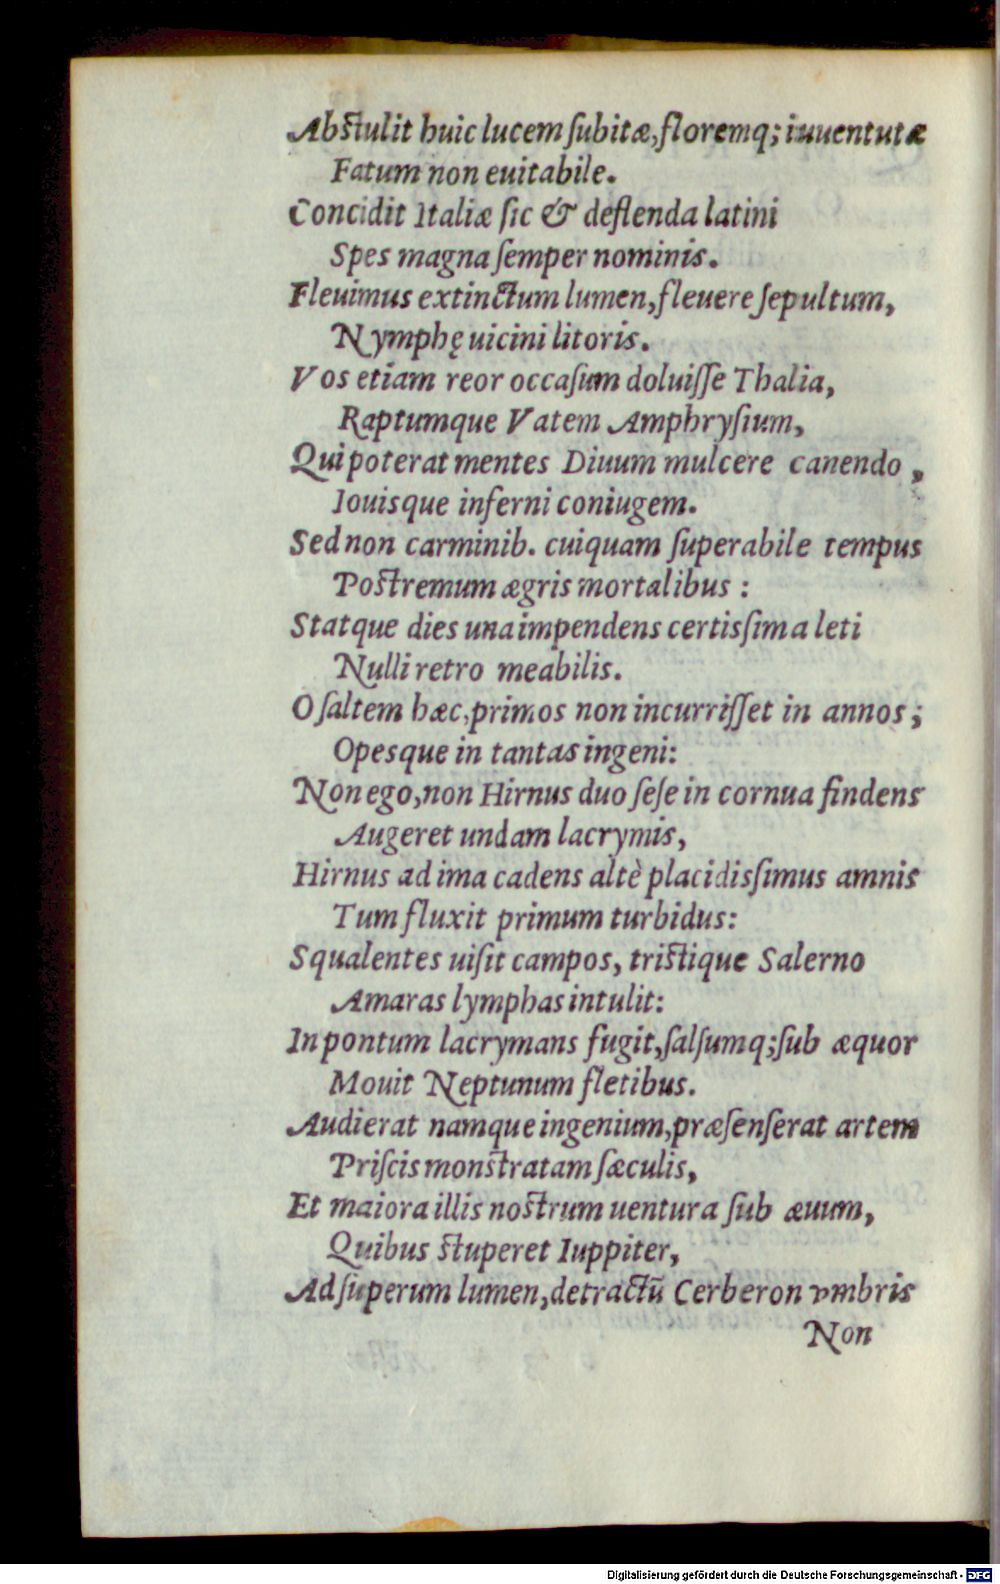 Abstulit huic lucem ſubitæ, floremq; iuuentutæ
Fatum non euitabile.
Concidit Italiæ ſic & deflenda latini
Spes magna ſemper nominis.
Fleuimus extinctum lumen, fleuere ſepultum,
Nymphę uicini litoris.
Vos etiam reor occaſum doluiſſe Thalia,
Raptumque Vatem Amphryſium,
Qui poterat mentes Diuum mulcere canendo,
Iouisque inferni coniugem.
Sed non carminib. cuiquam ſuperabile tempus
Postremum ægris mortalibus :
Statque dies una impendens certisſima leti
Nulli retro meabilis.
O ſaltem hæc, primos non incurriſſet in annos;
Opesque in tantas ingeni:
Non ego, non Hirnus duo ſeſe in cornua findens
Augeret undam lacrymis,
Hirnus ad ima cadens altè placidisſimus amnis
Tum fluxit primum turbidus:
Squalentes uiſit campos, tristique Salerno
Amaras lymphas intulit:
In pontum lacrymans fugit, ſalſumq; ſub æquor
Mouit Neptunum fletibus.
Audierat namque ingenium, præſenſerat artem
Priſcis monstratam ſæculis,
Et maiora illis nostrum uentura ſub æuum,
Quibus stuperet Iuppiter,
Ad ſuperum lumen, detractū Cerberon vmbris
Non
Digitalisierung gefördert durch die Deutsche Forschungsgemeinschaft - DFG